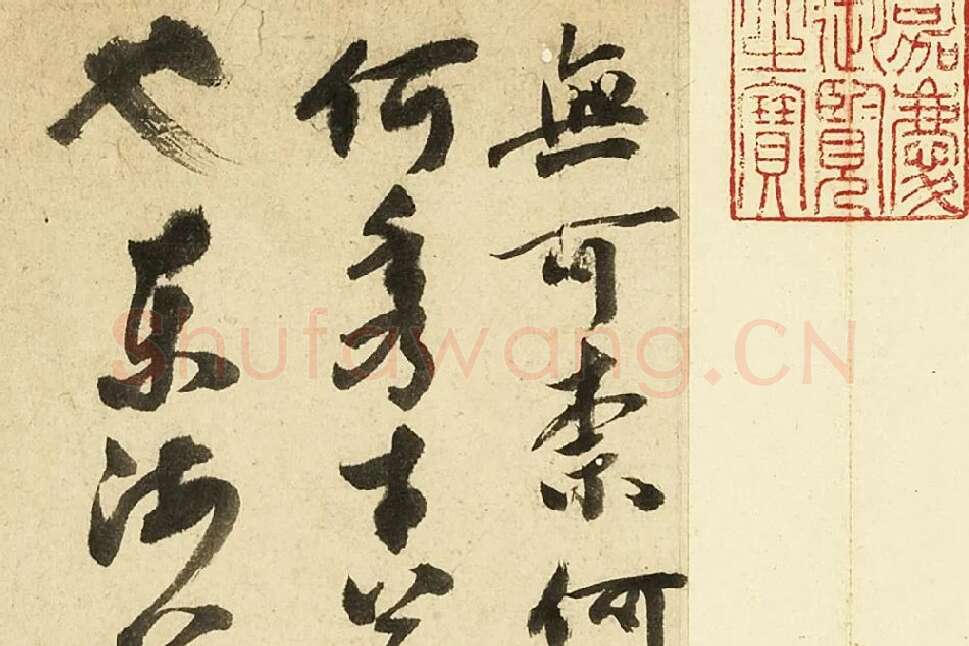 嘉慶
御覽
之寶
無可柰何
何秀才
也東海
Shufawang.CN